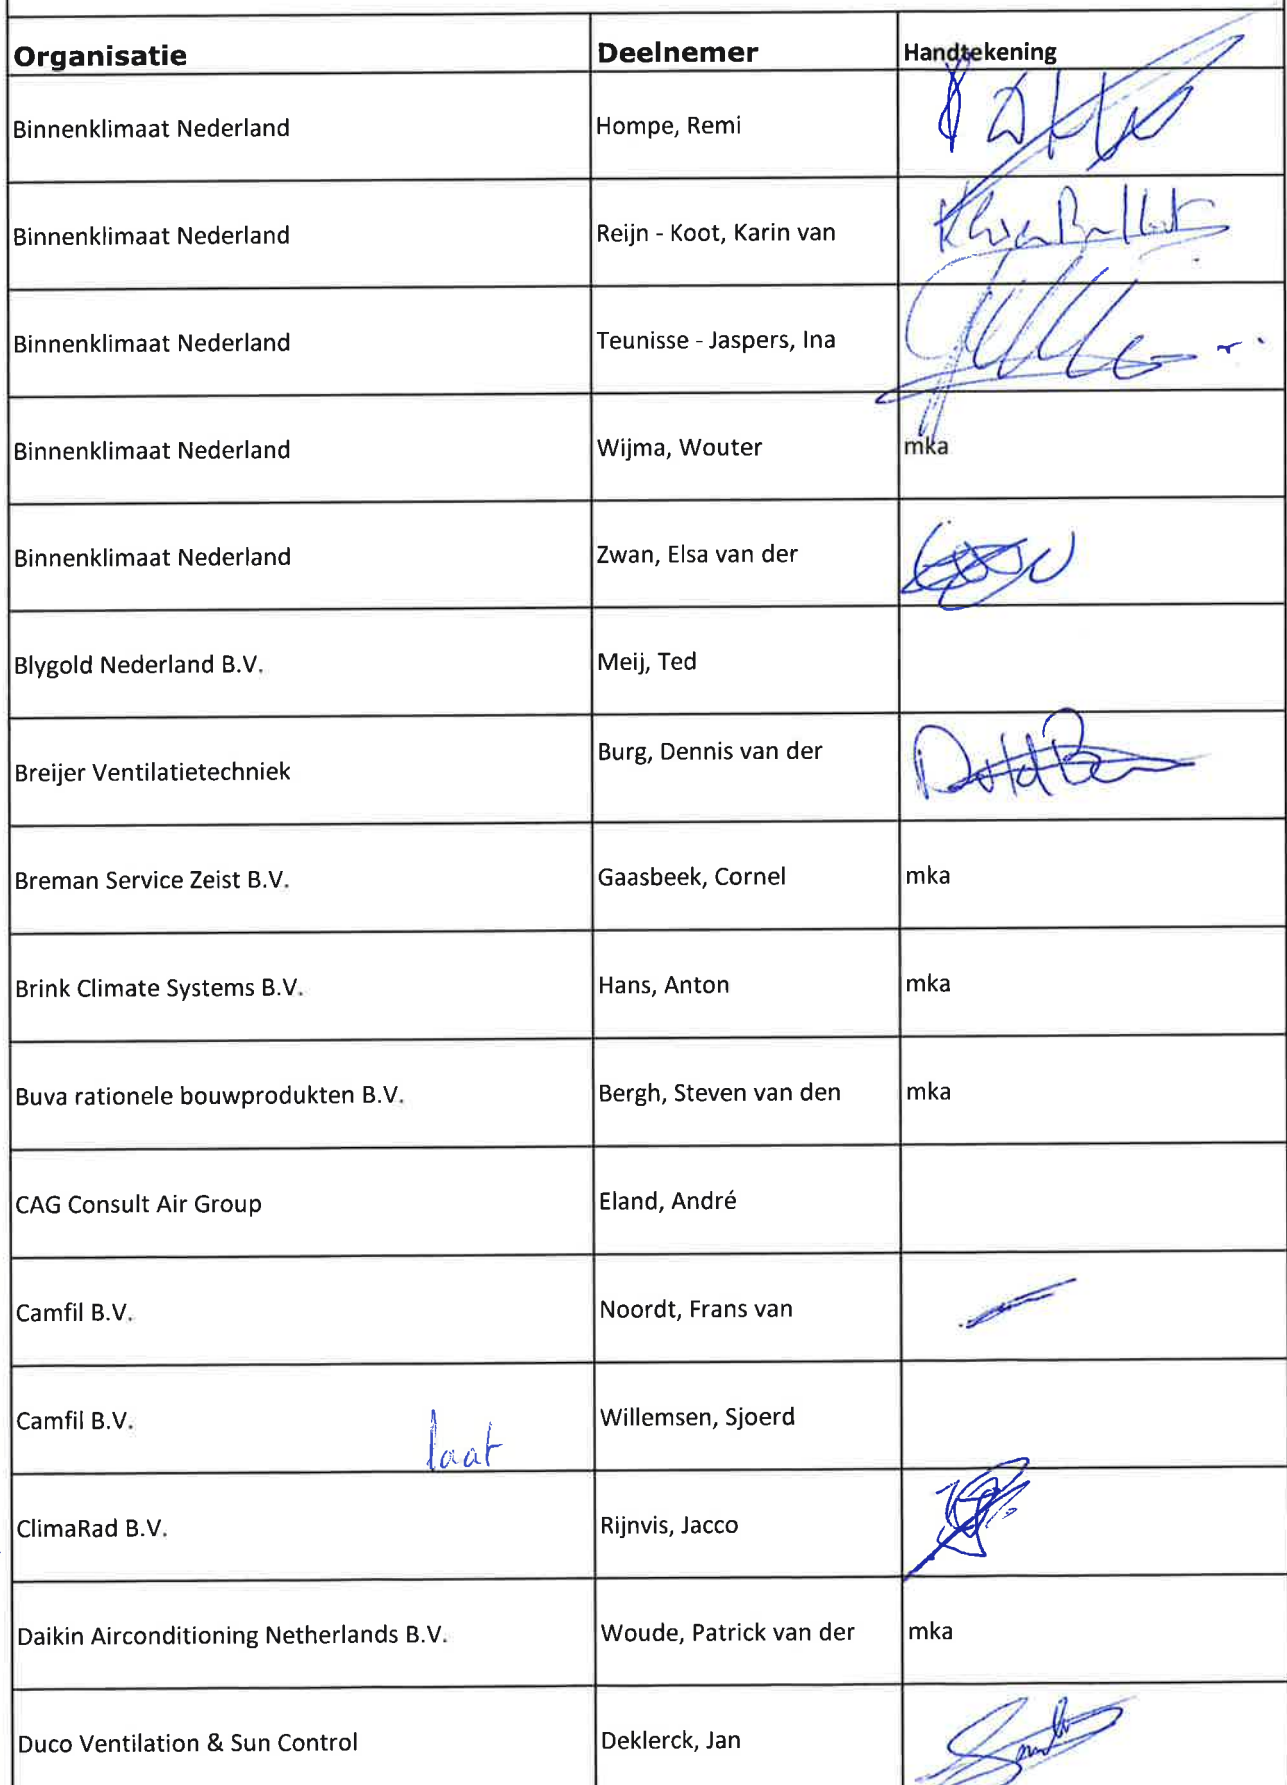 Organisatie Deelnemer Handtekening
Binnenklimaat Nederland Hompe, Remi
Binnenklimaat Nederland Reijn - Koot, Karin van
Binnenklimaat Nederland Teunisse - Jaspers, Ina
Binnenklimaat Nederland Wijma, Wouter mka
Binnenklimaat Nederland Zwan, Elsa van der
Blygold Nederland B.V. Meij, Ted
Breijer Ventilatietechniek Burg, Dennis van der
Breman Service Zeist B.V. Gaasbeek, Cornel mka
Brink Climate Systems B.V. Hans, Anton mka
Buva rationele bouwprodukten B.V. Bergh, Steven van den mka
CAG Consult Air Group Eland, André
Camfil B.V. Noordt, Frans van
Camfil B.V. laat Willemsen, Sjoerd
ClimaRad B.V. Rijnvis, Jacco
Daikin Airconditioning Netherlands B.V. Woude, Patrick van der mka
Duco Ventilation & Sun Control Deklerck, Jan